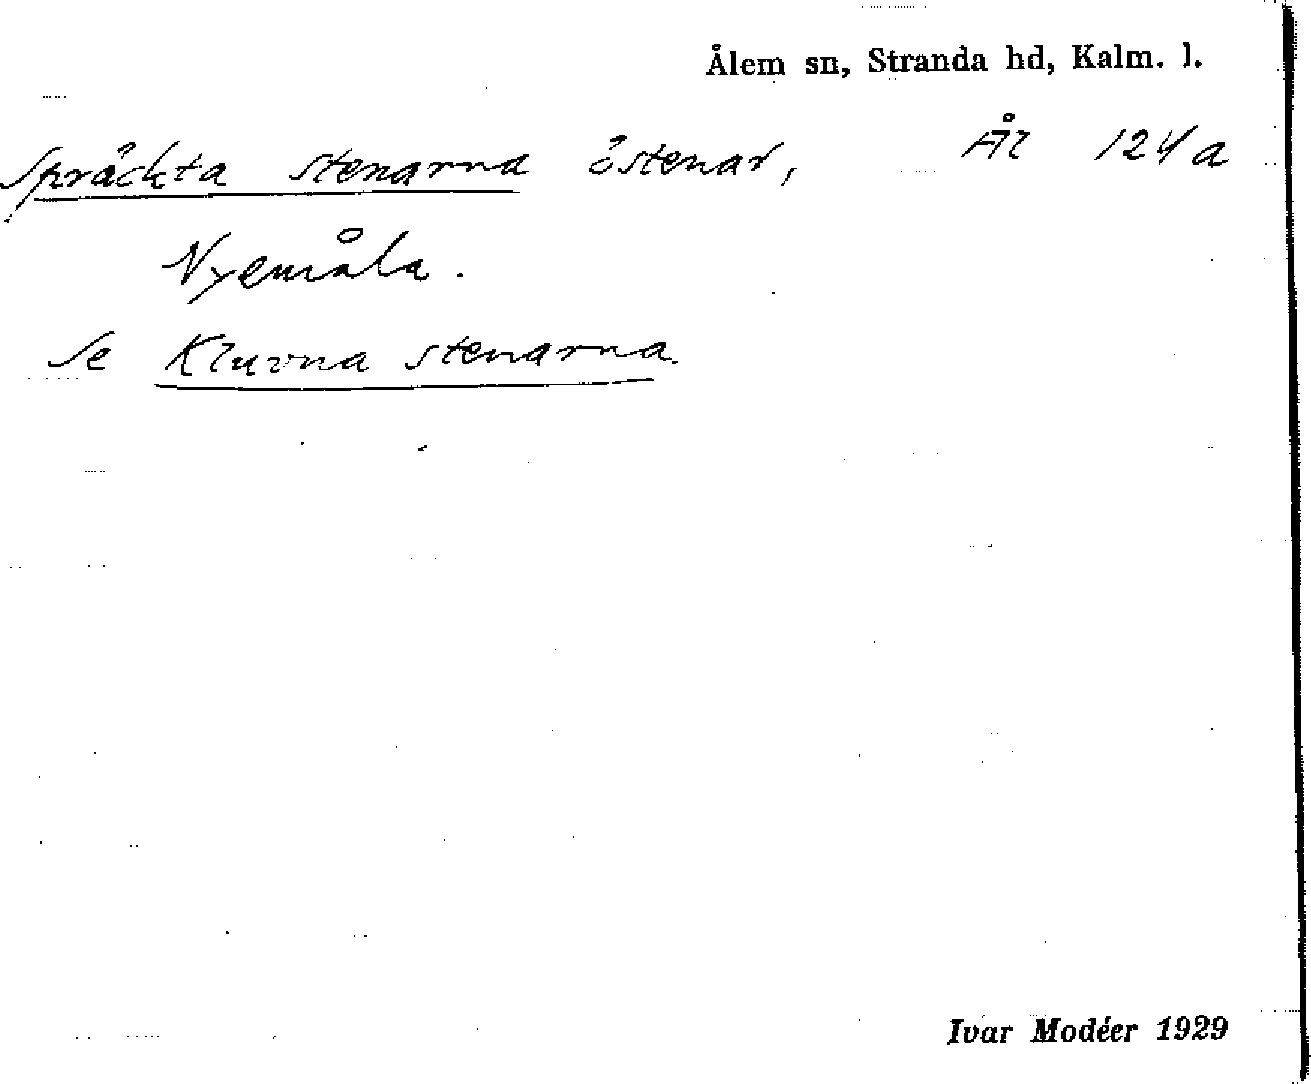 Ålem sn, Stranda hd, Kalm. l.
Spräckta stenarna östenar, Ål 124/a
Nyemåla.
Se Kluvna stenarna
Ivar Modéer 1929